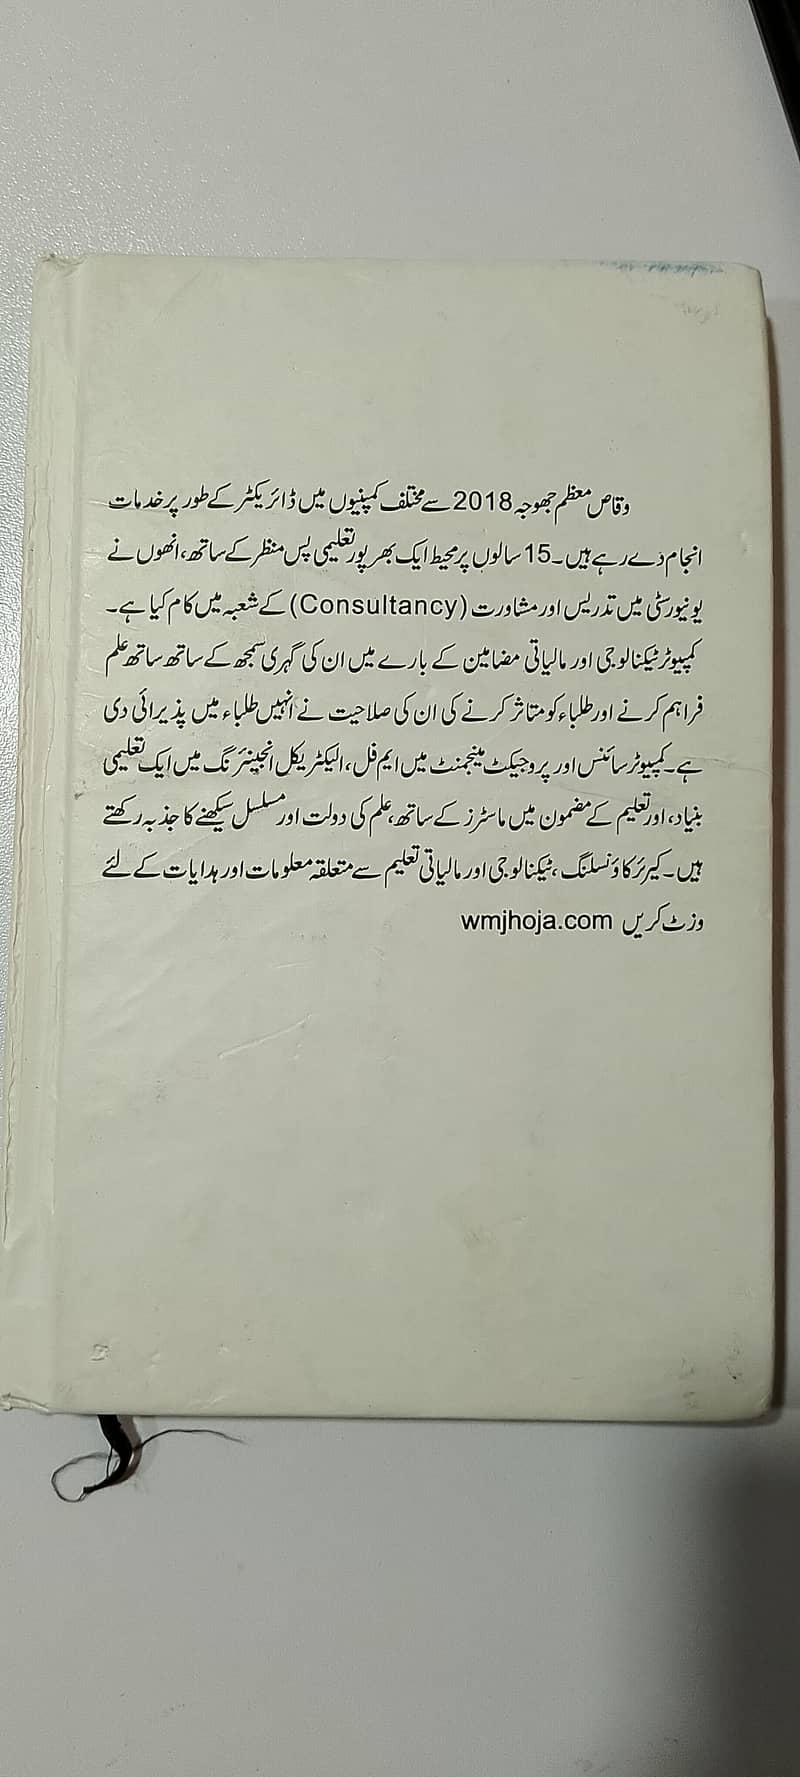 وقاص معظم جھوجہ 2018 سے مختلف کمپنیوں میں ڈائریکٹر کے طور پر خدمات
انجام دے رہے ہیں۔ 15 سالوں پر محیط ایک بھرپور تعلیمی پس منظر کے ساتھ، انھوں نے
یونیورسٹی میں تدریس اور مشاورت (Consultancy) کے شعبہ میں کام کیا ہے۔
کمپیوٹر ٹیکنالوجی اور مالیاتی مضامین کے بارے میں ان کی گہری سمجھ کے ساتھ ساتھ علم
فراہم کرنے اور طلباء کو متاثر کرنے کی ان کی صلاحیت نے انہیں طلباء میں پذیرائی دی
ہے۔ کمپیوٹر سائنس اور پروجیکٹ مینجمنٹ میں ایم فل، الیکٹریکل انجینئرنگ میں ایک تعلیمی
بنیاد، اور تعلیم کے مضمون میں ماسٹرز کے ساتھ، علم کی دولت اور مسلسل سیکھنے کا جذبہ رکھتے
ہیں۔ کیرئر کاؤنسلنگ، ٹیکنالوجی اور مالیاتی تعلیم سے متعلقہ معلومات اور ہدایات کے لئے
وزٹ کریں wmjhoja.com